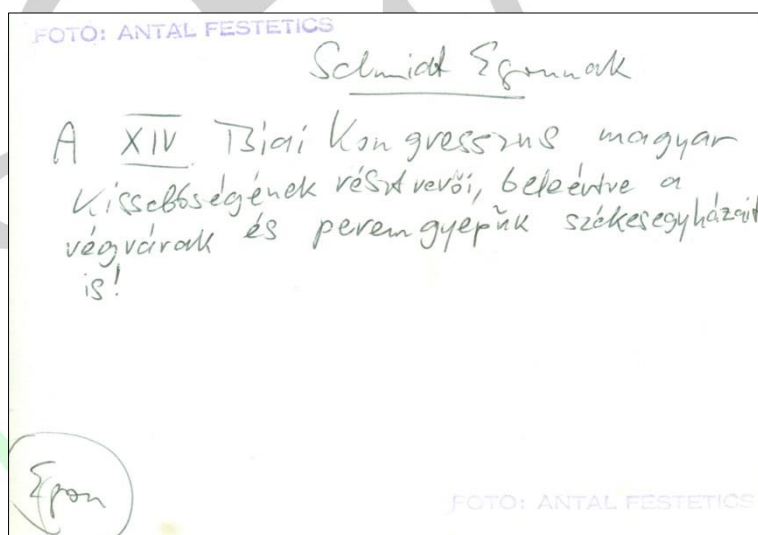 FOTO: ANTAL FESTETICS
Schmidt Egonnak
A XIV Biai Kongresszus magyar
Kissebbségének résztvevői, beleértve a
végvárak és peremgyepűk székesegyházait
is!
Egon
FOTO: ANTAL FESTETICS